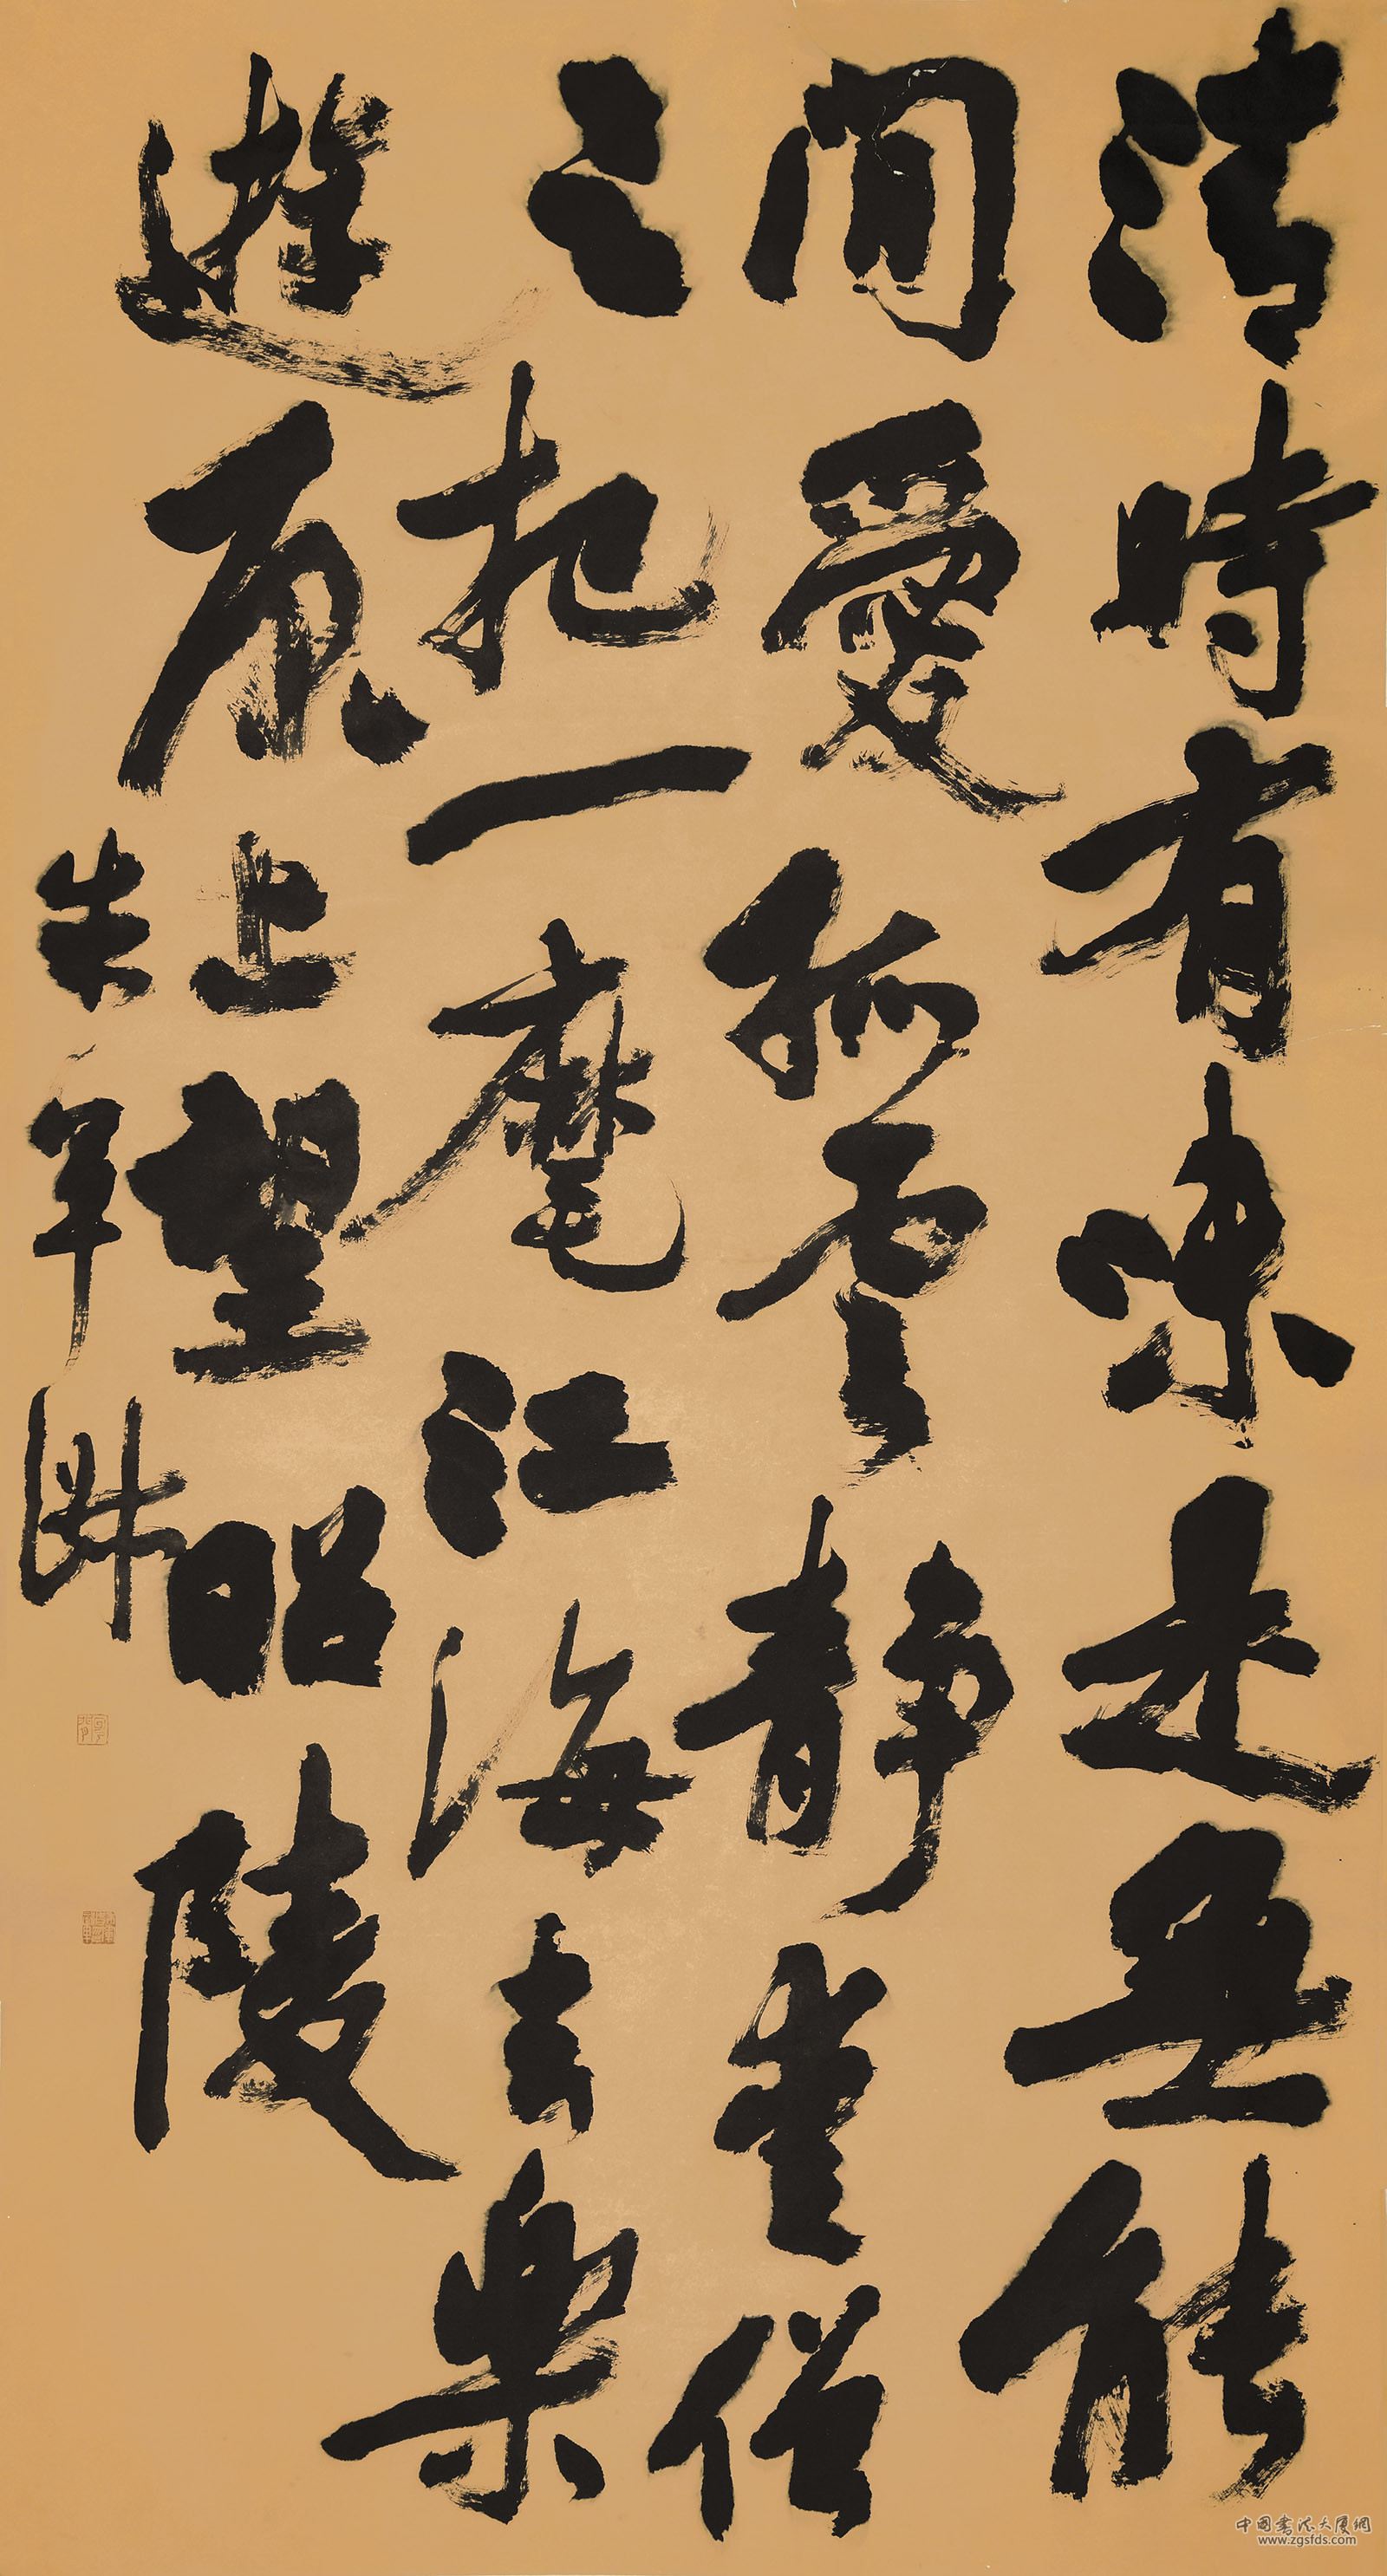 清時有味是無能
閒愛孤雲靜愛僧
把一麾江海去樂
遊原上望昭陵
中國書法大厦網
www.zgsfds.com